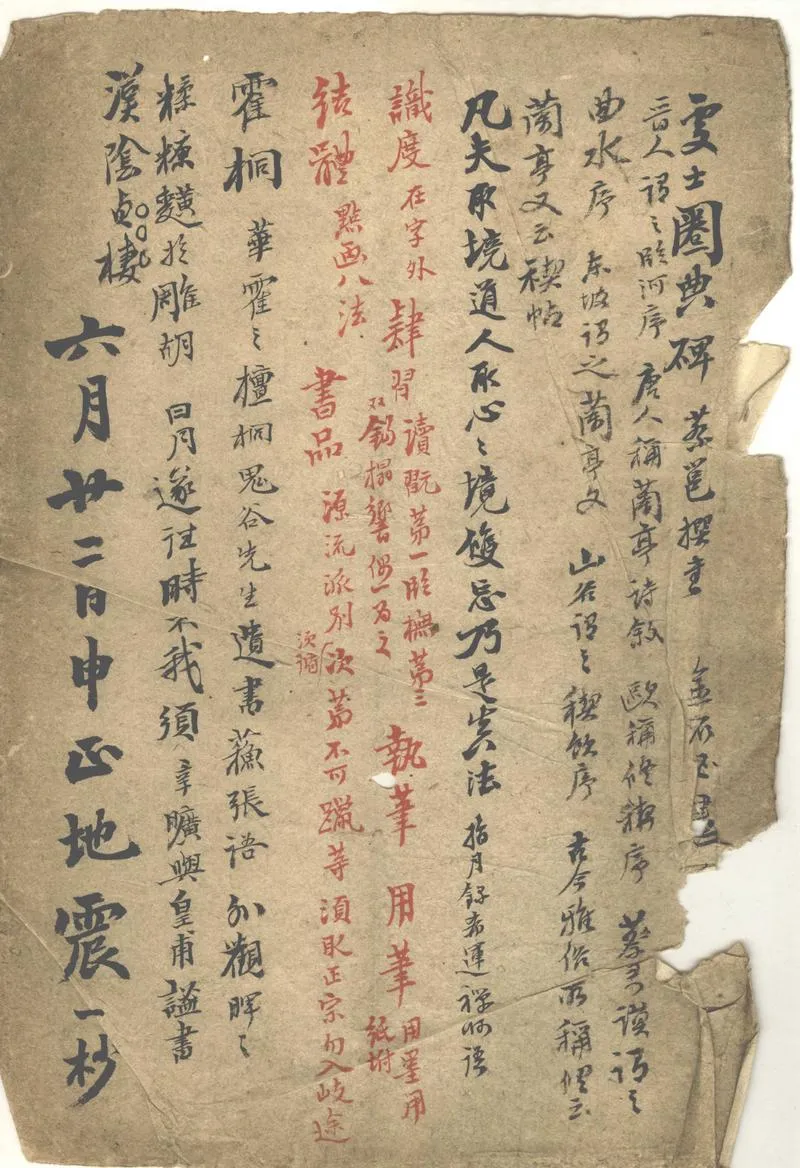 處士圈典碑 蔡邕撰書 金石
晉人謂之臨河序 唐人稱蘭亭詩敘 歐稱修禊序 蔡君謨謂之
曲水序 东坡謂之蘭亭文 山谷謂之禊飲序 古今雅俗所稱俱云
蘭亭又云禊帖
凡夫取境道人取心心境雙忘乃是真法 指月錄希運禪師語
識度 在字外 肆習 讀翫第一臨橅第二 執筆 用筆 用墨用
双鈎搨響偶一為之 紙附
結體 點画八法 書品 源流派别 次第不可躐等 須取正宗勿入歧途
須循
霍桐 華霍之檀桐鬼谷先生遺書蘇張語 外觀暉之
粖糠䵃於雕胡 日月遂往時不我須 幸曠與皇甫謐書
漢陰貞棲
六月廿二日申正地震一杪